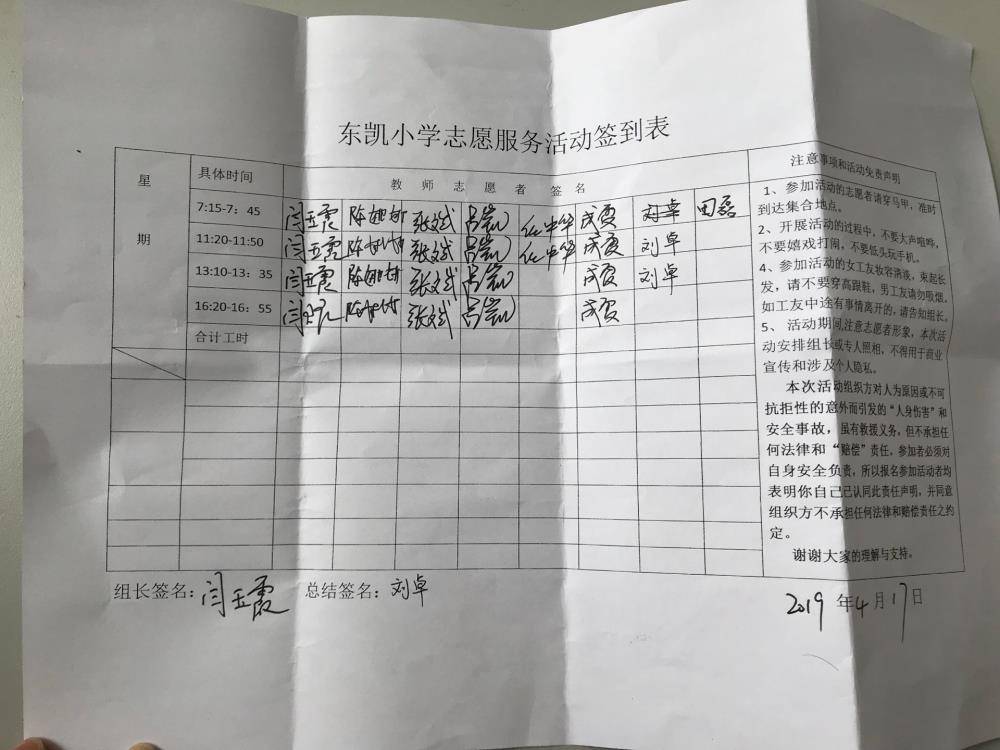 东凯小学志愿服务活动签到表
星期
具体时间
教师志愿者签名
注意事项和活动免责声明
7:15-7：45 闫玉霞 张斌 吕凯 成霞 刘卓 田磊
11:20-11:50 闫玉霞 张斌 吕凯 成霞 刘卓
13:10-13：35 闫玉霞 张斌 吕凯 成霞 刘卓
16:20-16：55 闫玉霞 张斌 吕凯 成霞
合计工时
1、参加活动的志愿者请穿马甲，准时
到达集合地点。
2、开展活动的过程中，不要大声喧哗，
不要嬉戏打闹，不要低头玩手机。
4、参加活动的女工友妆容清淡，束起长
发，请不要穿高跟鞋，男工友请勿吸烟。
如工友中途有事情离开的，请告知组长。
5、活动期间，注意志愿者形象，本次活
动安排组长或专人照相，不得用于商业
宣传和涉及个人隐私。
本次活动组织方对人为原因或不可
抗拒性的意外而引发的“人身伤害”和
安全事故，虽有救援义务，但不承担任
何法律和“赔偿”责任，参加者必须对
自身安全负责，所以报名参加活动者均
表明你自己已认同此责任声明，并同意
组织方不承担任何法律和赔偿责任之约
定。
谢谢大家的理解与支持。
组长签名：闫玉霞 总结签名：刘卓
2019年4月17日